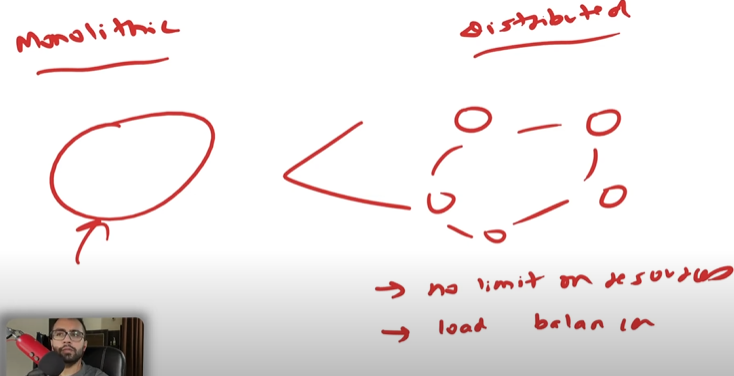 Monolithic
Distributed
→ no limit on resources
→ load balan in